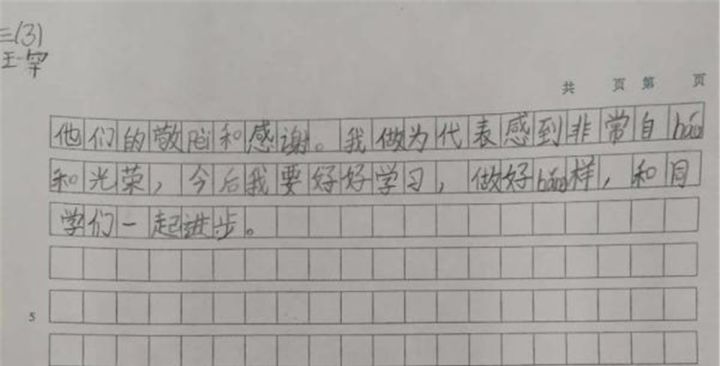 三(3)
王一罕
共 页 第 页
他们的敬佩和感谢。我做为代表感到非常自háo
和光荣，今后我要好好学习，做好bǎng样，和同
学们一起进步。
5